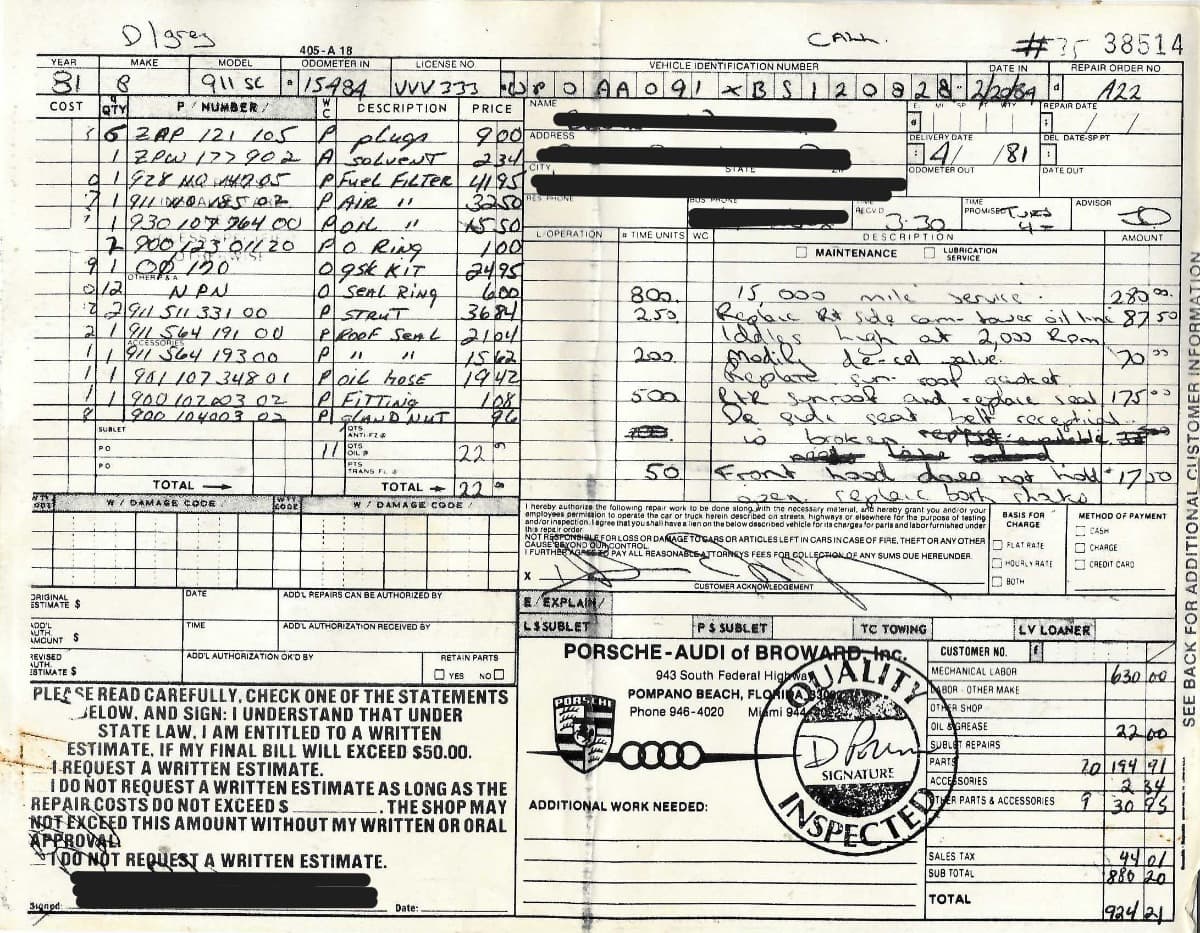 D/grey
CALL.
405-A 18
# 75 38514
YEAR MAKE MODEL ODOMETER IN LICENSE NO VEHICLE IDENTIFICATION NUMBER DATE IN REPAIR ORDER NO
81 8 911 SC 15484 VVV 333 WP0AA091XBS120828 2/20/84 A22
COST QTY P / NUMBER / WC DESCRIPTION PRICE
5 6 ZAP 121 105 P plugs 9 00
1 ZPW 177 902 A SOLVENT 2 34
1 928 P FUEL FILTER 41 95
1 911 P AIR " 32 50
1 930 107 764 00 P OIL " 15 50
2 900 123 011 20 P O RING 1 00
1 00 120 O gsk KIT 24 95
OTHER P & A
12 NPN O SEAL RING 6 00
2 911 511 331 00 P STRUT 36 84
1 911 564 191 00 P ROOF SEAL 21 04
ACCESSORIES
1 911 564 193 00 P " " 15 62
1 901 107 348 01 P OIL HOSE 19 42
1 900 102 003 02 P FITTING 1 08
900 104003 02 P GLAND NUT 96
SUBLET
PO
PO
TOTAL
QTS ANTI-FZ @
11 QTS OIL @ 22
PTS TRANS FL @
TOTAL 22
W / DAMAGE CODE W / DAMAGE CODE /
NAME
ADDRESS
CITY STATE
RES PHONE BUS PHONE
REPAIR DATE
DELIVERY DATE DEL DATE-SP PT
4/ /81
ODOMETER OUT DATE OUT
RECV'D 3:30 TIME PROMISED TUES 4- ADVISOR
L/OPERATION # TIME UNITS WC DESCRIPTION AMOUNT
MAINTENANCE LUBRICATION SERVICE
800. 15,000 mile service. 280 00
250. Replace Rt side cam-tower oil line 87 50
Iddles high at 2,000 Rpm
200. modify de-cel valve. 70 00
Replace sun-roof gasket.
500. R&R sunroof and replace seal 175 00
Dr side seat belt receptical
is broken
50 Front hood does not hold 17 50
open replace both shaks
I hereby authorize the following repair work to be done along with the necessary material, and hereby grant you and/or your
employees permission to operate the car or truck herein described on streets, highways or elsewhere for the purpose of testing
and/or inspection. I agree that you shall have a lien on the below described vehicle for its charges for parts and labor furnished under
this repair order
NOT RESPONSIBLE FOR LOSS OR DAMAGE TO CARS OR ARTICLES LEFT IN CARS IN CASE OF FIRE, THEFT OR ANY OTHER
CAUSE BEYOND OUR CONTROL.
I FURTHER AGREE TO PAY ALL REASONABLE ATTORNEYS FEES FOR COLLECTION OF ANY SUMS DUE HEREUNDER.
X
CUSTOMER ACKNOWLEDGEMENT
BASIS FOR CHARGE
FLAT RATE
HOURLY RATE
BOTH
METHOD OF PAYMENT
CASH
CHARGE
CREDIT CARD
SEE BACK FOR ADDITIONAL CUSTOMER INFORMATION
ORIGINAL ESTIMATE $ DATE ADD'L REPAIRS CAN BE AUTHORIZED BY
ADD'L AUTH. AMOUNT $ TIME ADD'L AUTHORIZATION RECEIVED BY
REVISED AUTH. ESTIMATE $ ADD'L AUTHORIZATION OK'D BY RETAIN PARTS
YES NO
PLEASE READ CAREFULLY, CHECK ONE OF THE STATEMENTS
BELOW, AND SIGN: I UNDERSTAND THAT UNDER
STATE LAW, I AM ENTITLED TO A WRITTEN
ESTIMATE, IF MY FINAL BILL WILL EXCEED $50.00.
I REQUEST A WRITTEN ESTIMATE.
I DO NOT REQUEST A WRITTEN ESTIMATE AS LONG AS THE
REPAIR COSTS DO NOT EXCEED $ . THE SHOP MAY
NOT EXCEED THIS AMOUNT WITHOUT MY WRITTEN OR ORAL
APPROVAL.
I DO NOT REQUEST A WRITTEN ESTIMATE.
Signed: Date:
E / EXPLAIN /
L S SUBLET P S SUBLET TC TOWING LV LOANER
PORSCHE-AUDI of BROWARD, Inc.
943 South Federal Highway
POMPANO BEACH, FLORIDA
Phone 946-4020 Miami
PORSCHE
QUALITY
SIGNATURE
INSPECTED
ADDITIONAL WORK NEEDED:
CUSTOMER NO.
MECHANICAL LABOR 630 00
LABOR - OTHER MAKE
OTHER SHOP
OIL & GREASE 22 00
SUBLET REPAIRS
PARTS 20 194 91
ACCESSORIES 2 34
OTHER PARTS & ACCESSORIES 9 30 95
SALES TAX 44 01
SUB TOTAL 880 20
TOTAL 924 21